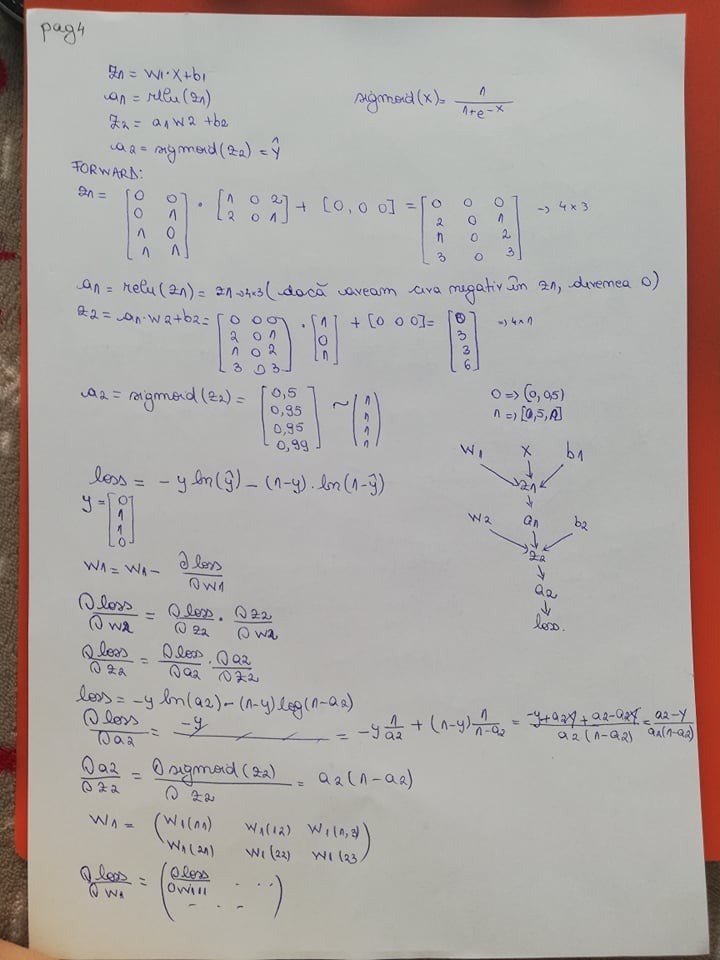 pag 4
z1 = w1·x+b1
a1 = relu(z1)
sigmoid(x) = 1 / (1+e^-x)
z2 = a1 w2 + b2
a2 = sigmoid(z2) = ŷ
FORWARD:
z1 = [0 0; 0 1; 1 0; 1 1] · [1 0 2; 2 0 1] + [0, 0 0] = [0 0 0; 2 0 1; 1 0 2; 3 0 3] → 4×3
a1 = relu(z1) = z1 → 4×3 (dacă aveam ceva negativ în z1, devenea 0)
z2 = a1·w2+b2 = [0 0 0; 2 0 1; 1 0 2; 3 0 3] · [1; 0; 1] + [0 0 0] = [0; 3; 3; 6] ⇒ 4×1
a2 = sigmoid(z2) = [0,5; 0,95; 0,95; 0,99] ~ (1; 1; 1; 1)
0 ⇒ (0, 0,5)
1 ⇒ [0,5, 1]
loss = - y ln(ŷ) - (1-y)·ln(1-ŷ)
y = [0; 1; 1; 0]
w1 x b1
z1
w2 a1 b2
z2
a2
loss.
w1 = w1 - ∂loss/∂w1
∂loss/∂w2 = ∂loss/∂z2 · ∂z2/∂w2
∂loss/∂z2 = ∂loss/∂a2 · ∂a2/∂z2
loss = -y ln(a2) - (1-y) log(1-a2)
∂loss/∂a2 = -y/ = -y 1/a2 + (1-y) 1/(1-a2) = (-y+a2y+a2-a2y)/(a2(1-a2)) = (a2-y)/(a2(1-a2))
∂a2/∂z2 = ∂sigmoid(z2)/∂z2 = a2(1-a2)
w1 = (w1(11) w1(12) w1(1,3); w1(21) w1(22) w1(23)
∂loss/∂w1 = (∂loss/∂w111 . . .; - . -)